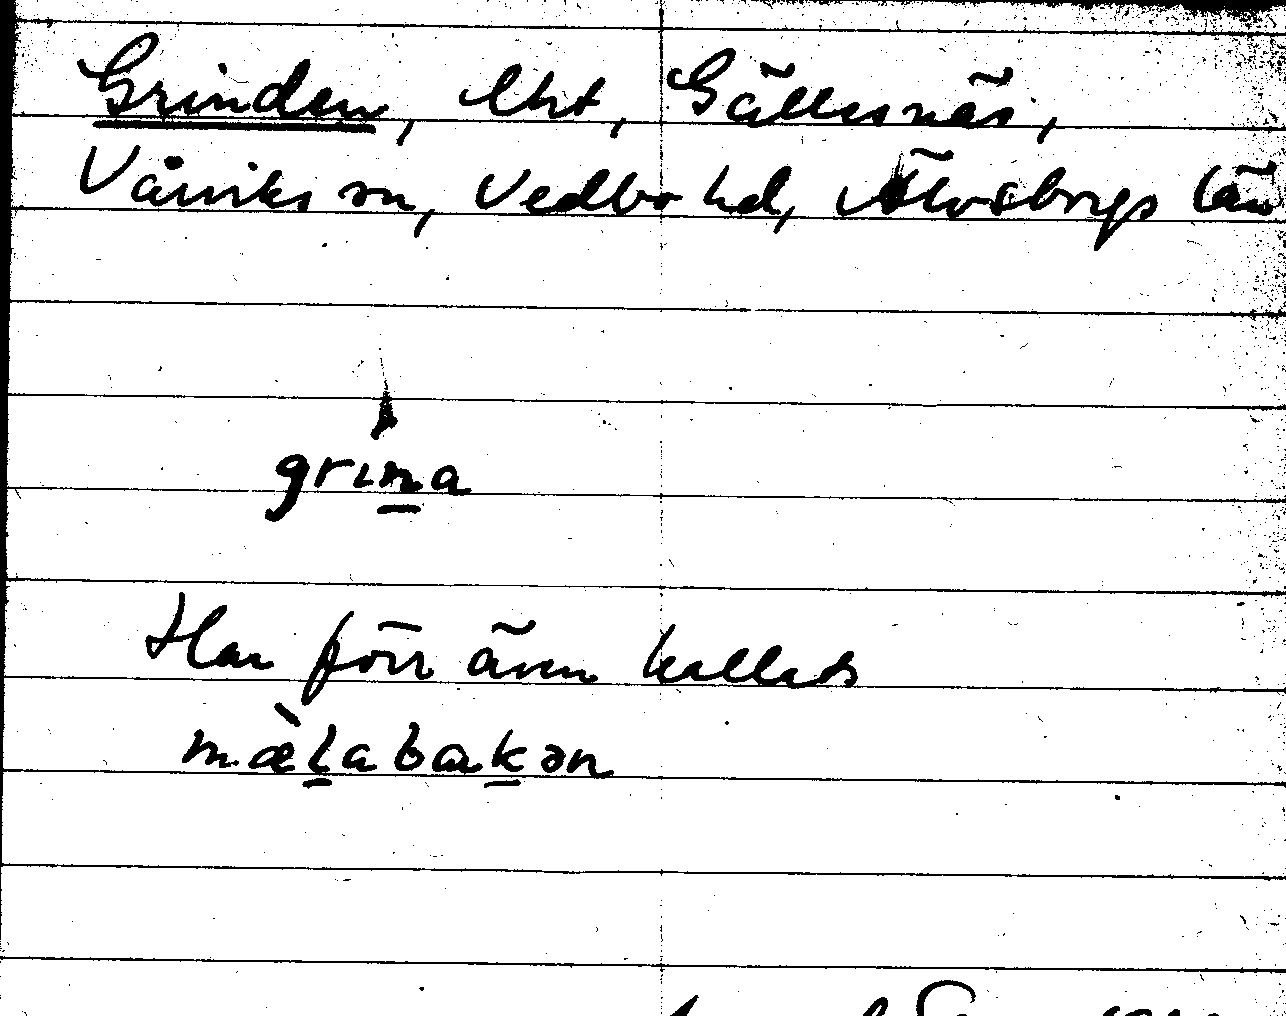 Grinden, lht, Gällesnäs,
Vårviks sn, Vedbo hd, Älvsborgs län
grina
Har förr även kallats
mæ̀labakən